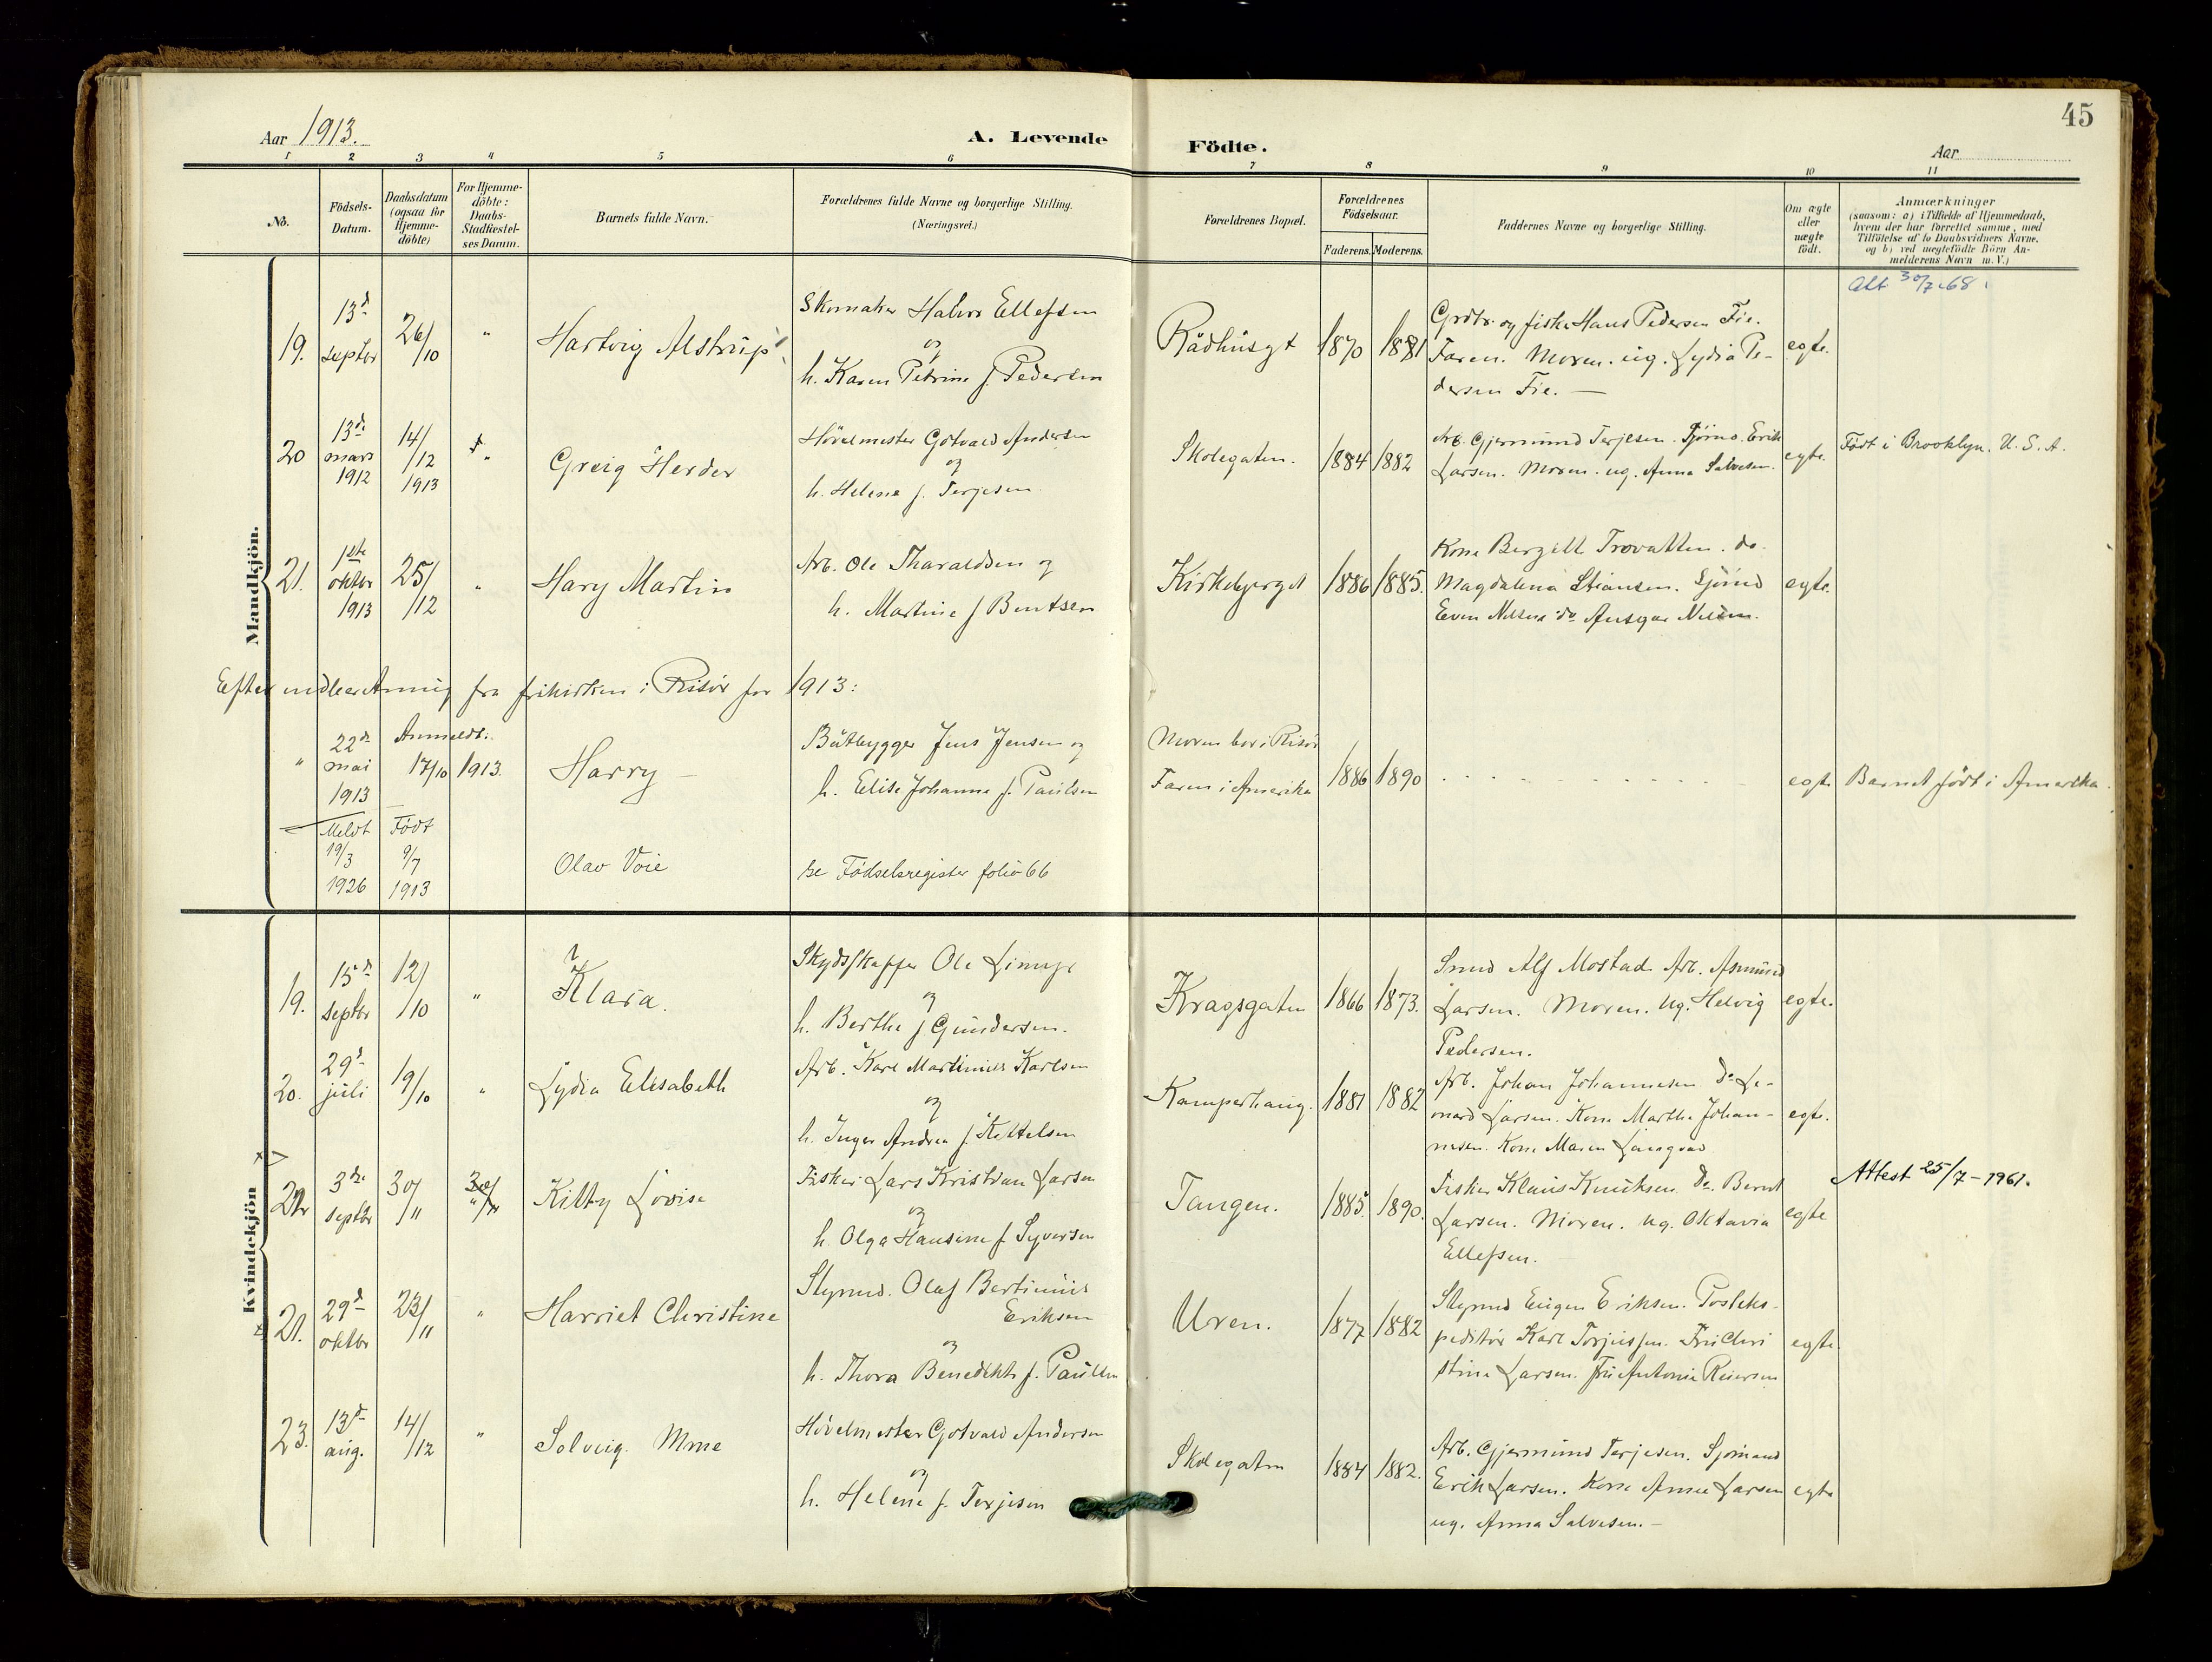 45
Aar 1913.
A. Levende Födte.
Aar
1 2 3 4 5 6 7 8 9 10 11
No.
Födsels-
Datum.
Daabsdatum
(ogsaa för
Hjemme-
döbte)
For Hjemme-
döbte:
Daabs-
Stadfæstel-
ses Datum.
Barnets fulde Navn.
Forældrenes fulde Navne og borgerlige Stilling.
(Næringsvei.)
Forældrenes Bopæl.
Forældrenes
Födselsaar.
Faderens.
Moderens.
Faddernes Navne og borgerlige Stilling.
Om ægte
eller
uægte
födt.
Anmærkninger
(saasom: a) i Tilfælde af Hjemmedaab,
hvem der har forrettet samme, med
Tilföielse af to Daabsvidners Navne,
og b) ved uægtefödte Börn An-
melderens Navn m. V.)
Mandkjön.
19.
13d
septbr
26/10
"
Hartvig Alstrup
Skomaker Halvor Ellefsen
og
h. Karen Petrine f. Pedersen
Rådhusgt
1870
1881
Grdbr. og fisker Hans Pedersen Fie.
Faren. Moren. ug. Lydia Pe-
dersen Fie. —
egte.
Att 30/7-68
20
13de
mars
1912
14/12
1913
"
Greig Herder
Hövelmester Gotvald Andersen
og
h. Helene f. Terjesen
Skolegaten.
1884
1882
Arb. Gjermund Terjesen. Sjömd. Erik
Larsen. Moren. ug. Anna Salvesen.
egte.
Födt i Brooklyn. U. S. A.
21.
1ste
oktbr
1913
25/12
"
Hary Martin
Arb. Ole Tharaldsen og
h. Martine f Bentsen
Kirkebjerget
1886
1885.
Kone Bergitt Trovatten. do.
Magdalena Stiansen. Sjömd
Even Nilsen do Ansgar Nilsen.
egte.
Efter indberetning fra frikirken i Risör for 1913:
"
22de
mai
1913
Anmeldt:
17/10 1913.
Harry —
Båtbygger Jens Jensen og
h. Elise Johanne f. Paulsen
Moren bor i Risör
Faren i Amerika
1886
1890
egte
Barnet födt i Amerika.
Meldt
19/3
1926
Födt
9/7
1913
Olav Voie
se Födselsregister folio 66
Kvindekjön
19.
15d
septbr
12/10
"
Klara.
Skydsskaffer Ole
og
h. Berthe f Gundersen.
Kragsgaten
1866
1873.
Smed Alf Mostad. Arb. Asmund
Larsen. Moren. Ug. Helvig
Pedersen.
egte.
20.
29d
juli
19/10
"
Lydia Elisabeth
Arb. Karl Martinius Karlsen
og
h. Inger Andrea f. Kittelsen
Kamperhaug.
1881
1882
Arb. Johan Johannesen. Do Le-
nard Larsen. Kone Marthe Johan-
nesen. Kone Maren
egte.
3die
septbr
30/11
Kitty Lovise
Fisker Lars Kristian Larsen
og
h. Olga Hansine f. Syversen
Tangen.
1885.
1890.
Fisker Klaus Knutsen. Do. Bernt
Larsen. Moren. Ug. Oktavia
Ellefsen.
egte
Attest 25/7-1961.
21.
29d
oktbr
23/11
"
Harriet Christine
Styrmd. Olaf Bertinius
Eriksen
og
h. Thora Benedikte f. Paulsen
Uren.
1877
1882
Styrmd Eugen Eriksen. Posteks-
peditör Karl Torjussen. Fru Chri
stine Larsen. Fru Antonie Reiersen
egte.
23.
13d
aug.
14/12
"
Solveig
Hövelmester Gotvald Andersen
og
h. Helene f. Terjesen
Skolegaten
1884
1882.
Arb. Gjermund Terjesen. Sjömand
Erik Larsen. Kone Anne Larsen
ug. Anna Salvesen. —
egte